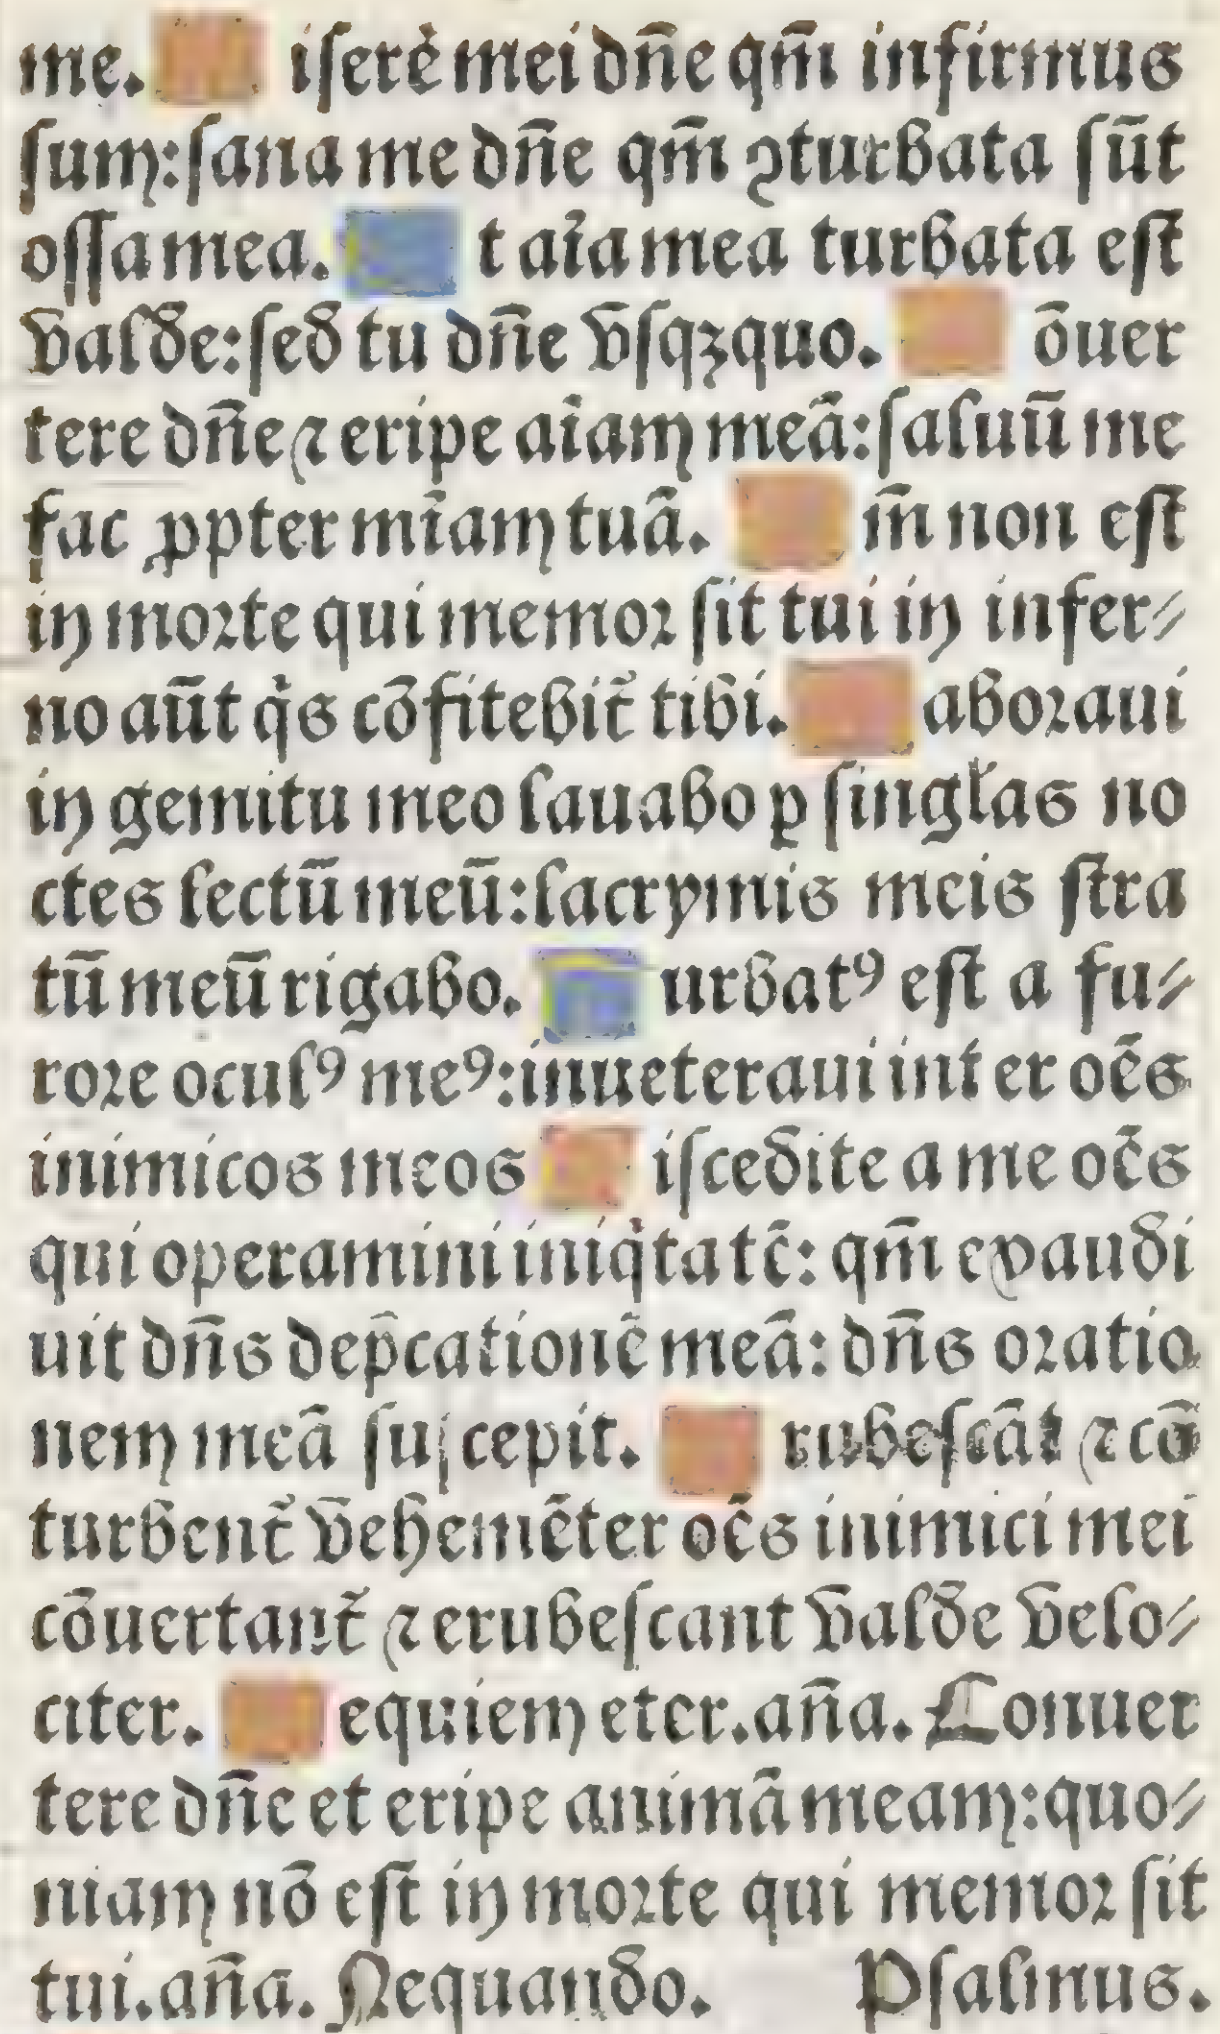 me. iſerè mei dñe qm̃ infirmus
ſum: ſana me dñe qm̃ ꝯturbata ſūt
oſſa mea. t aĩa mea turbata eſt
valde: ſed tu dñe vſqꝫquo. ōuer
tere dñe ⁊ eripe aĩam meā: ſaluū me
fac ꝓpter mĩam tuā. m̃ non eſt
in moꝛte qui memoꝛ ſit tui in infer⸗
no aūt qͥs cōfitebit᷑ tibi. aboꝛaui
in gemitu meo lauabo ꝑ ſingl̃as no
ctes lectū meū: lacrymis meis ſtra
tū meū rigabo. urbatꝰ eſt a fu⸗
roꝛe oculꝰ meꝰ: inueteraui inter oēs
inimicos meos iſcedite a me oēs
qui operamini iniqͥtatē: qm̃ exaudi
uit dñs dep̄cationē meā: dñs oꝛatio
nem meā ſuſcepit. rubeſcāt ⁊ cō
turbent᷑ vehemēter oēs inimici mei
cōuertant᷑ ⁊ erubeſcant valde velo⸗
citer. equiem eter. aña. Conuer
tere dñe et eripe animā meam: quo⸗
niam nō eſt in moꝛte qui memoꝛ ſit
tui. aña. Nequando. Pſalmus.